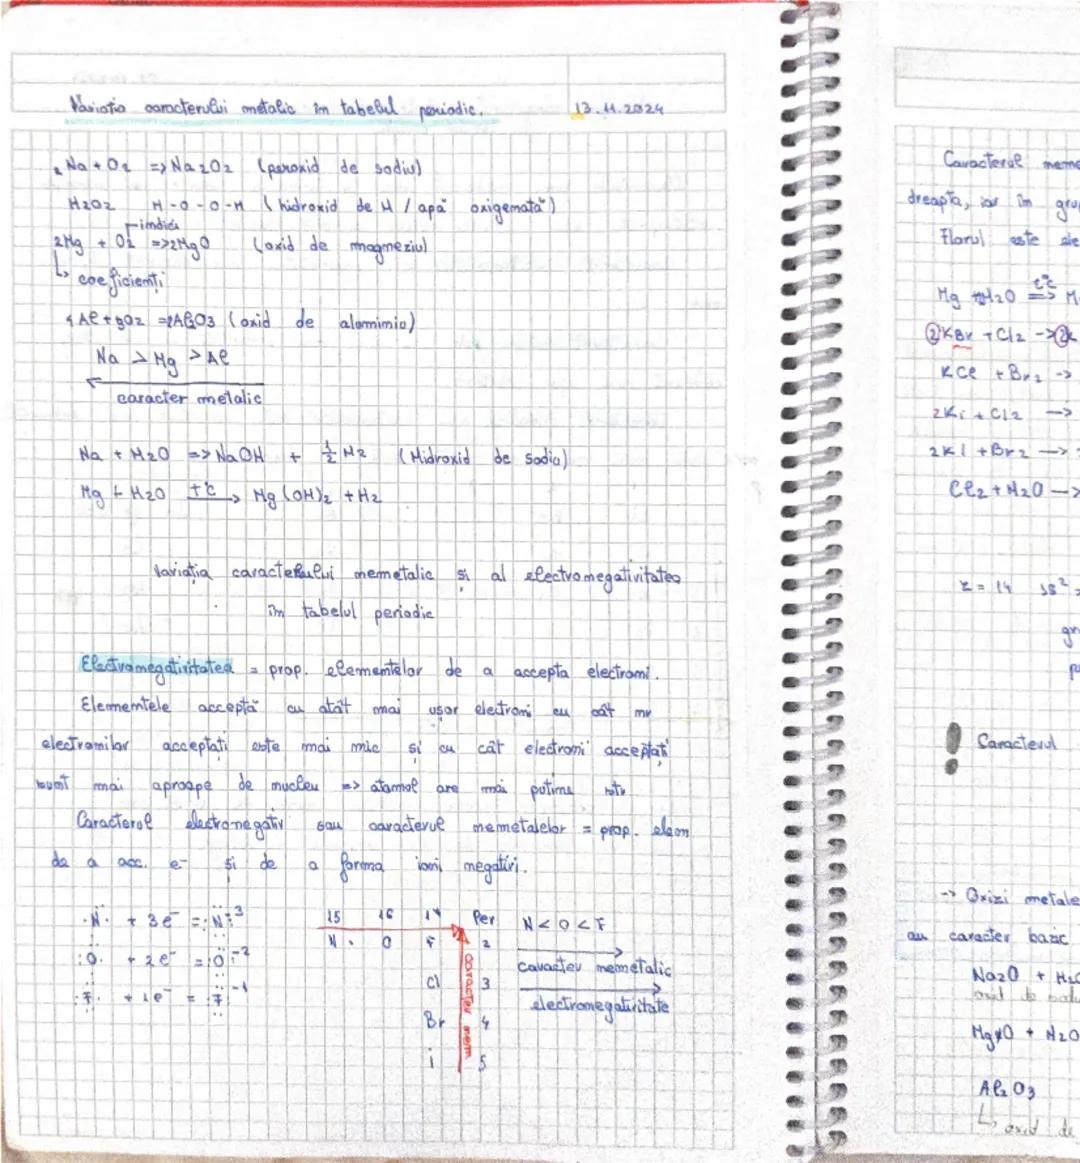 Variatia caracterului metalic în tabelul periodic. 13.11.2024
2Na + O2 => Na2O2 (peroxid de sodiu)
H2O2 H-O-O-H (hidroxid de H / apă oxigenată)
indici
2Mg + O2 => 2MgO (oxid de magneziu)
↳ coeficienți
4Al + 3O2 = 2Al2O3 (oxid de aluminiu)
Na > Mg > Al
caracter metalic
Na + H2O => NaOH + 1/2 H2 (Hidroxid de sodiu)
Mg + H2O t°C → Mg(OH)2 + H2
Variația caracterului nemetalic și al electronegativitatea
în tabelul periodic
Electronegativitatea = prop. elementelor de a accepta electroni.
Elementele acceptă cu atât mai ușor electroni cu cât nr
electronilor acceptați este mai mic și cu cât electronii acceptați
sunt mai aproape de nucleu => atomul are mai puține
Caracterul electronegativ sau caracterul nemetalelor = prop. elem
de a acc. e- și de a forma ioni negativi.
N + 3e- = N 3
O + 2e- = O -2
F + 1e- = F -1
15 16 17 Per
N O F 2
Cl 3
Br 4
i 5
caracter nem
N < O < F
caracter nemetalic
electronegativitate
Caracterul neme
dreapta, iar în gru
Florul este ele
Mg + H2O t°C => M
2KBr + Cl2 -> 2K
KCl + Br2 ->
2Ki + Cl2 ->
2KI + Br2 ->
Cl2 + H2O ->
Z = 14 1s2
gr
pe
! Caracterul
-> Oxizi metale
au caracter bazic
Na2O + H2O
oxid de
MgO + H2O
Al2O3
↳ oxid de